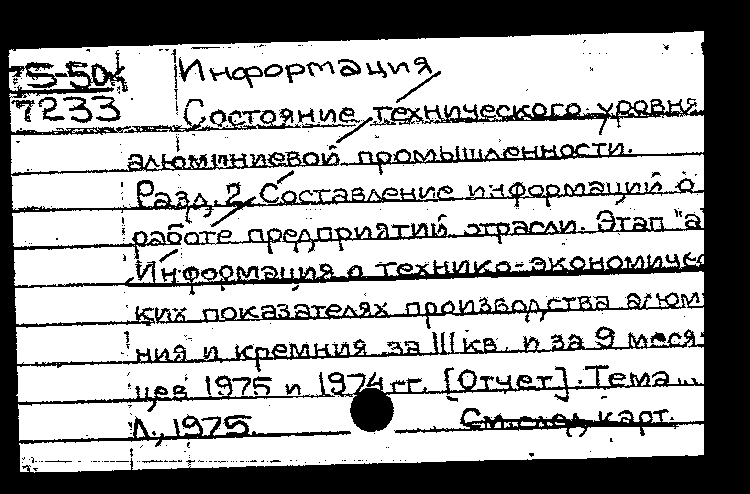 75-50к Информация
7233 Состояние технического уровня
алюминиевой промышленности.
Разд. 2. Составление информаций о
работе предприятий отрасли. Этап "а"
Информация о технико-экономичес
ких показателях производства алюми
ния и кремния за III кв. и за 9 меся-
цев 1975 и 1974 гг. [Отчет]. Тема...
Л., 1975. См. след. карт.